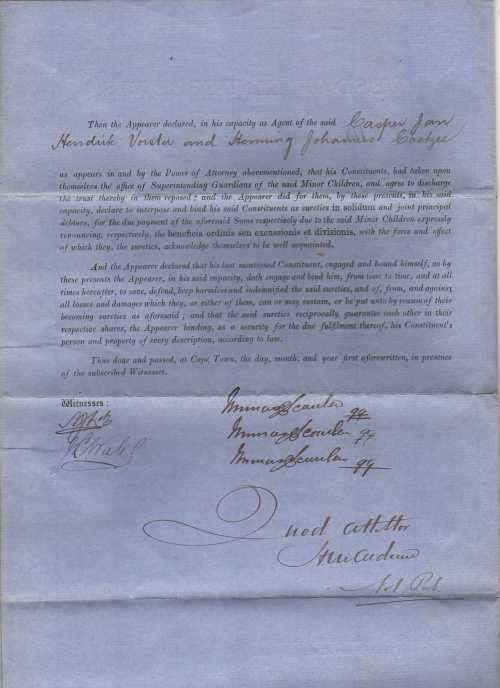 Then the Appearer declared, in his capacity as Agent of the said Casper Jan
Hendrik Vorster and Henning Johannes Coetzee
as appears in and by the Power of Attorney abovementioned, that his Constituents, had taken upon
themselves the office of Superintending Guardians of the said Minor Children, and agree to discharge
the trust thereby in them reposed; and the Appearer did for them, by these presents, in his said
capacity, declare to interpose and bind his said Constituents as sureties in solidum and joint principal
debtors, for the due payment of the aforesaid Sums respectively due to the said Minor Children expressly
renouncing, respectively, the beneficia ordinis seu excussionis et divisionis, with the force and effect
of which they, the sureties, acknowledge themselves to be well acquainted.
And the Appearer declared that his last mentioned Constituent, engaged and bound himself, as by
these presents the Appearer, in his said capacity, doth engage and bind him, from time to time, and at all
times hereafter, to save, defend, keep harmless and indemnified the said sureties, and of, from, and against
all losses and damages which they, or either of them, can or may sustain, or be put unto by reason of their
becoming sureties as aforesaid; and that the said sureties reciprocally guarantee each other in their
respective shares, the Appearer binding, as a security for the due fulfilment thereof, his Constituent's
person and property of every description, according to law.
Thus done and passed, at Cape Town, the day, month, and year first aforewritten, in presence
of the subscribed Witnesses.
Witnesses:
qq
qq
qq
Quod Attestor
Not Pub